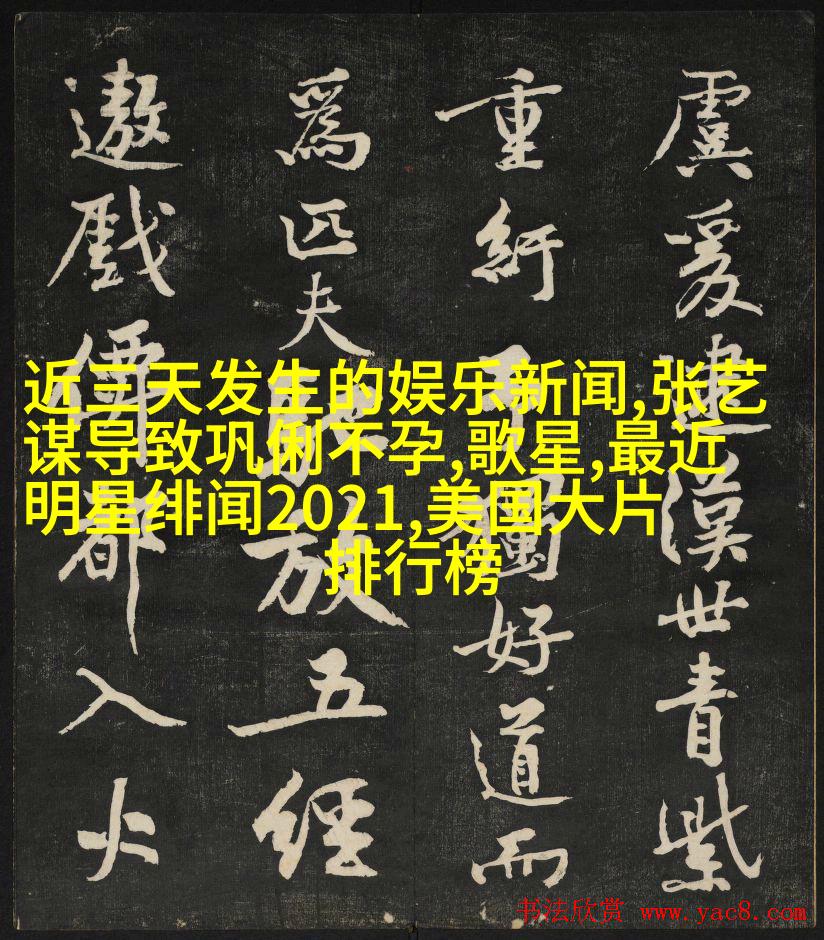 虞爰逮漢世青紫
重紆獨好道而
爲匹夫放五經
遨戲都入火
近三天发生的娱乐新闻,张艺
谋导致巩俐不孕,歌星,最近
明星绯闻2021,美国大片
排行榜
书法欣赏 www.yac8.com